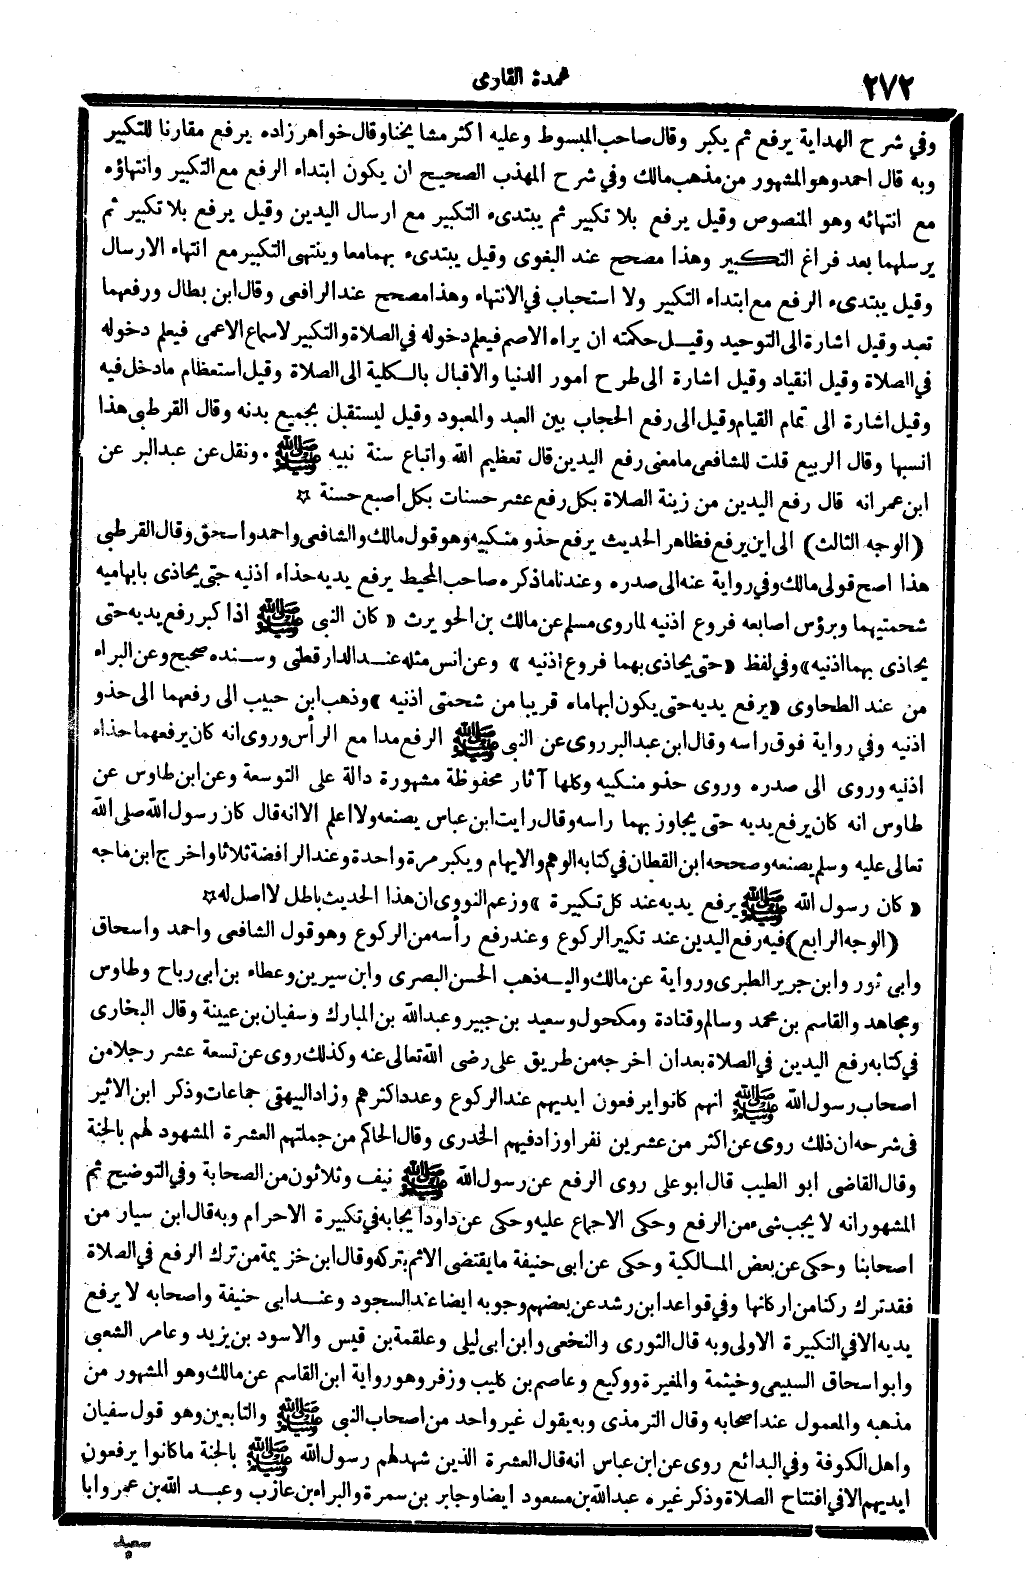 ٢٧٢
عمدة القارى
وفي شرح الهداية يرفع ثم يكبر وقال صاحب المبسوط وعليه اكثر مشايخنا وقال خواهر زاده يرفع مقارنا للتكبير
وبه قال احمد وهو المشهور من مذهب مالك وفي شرح المهذب الصحيح ان يكون ابتداء الرفع مع التكبير وانتهاؤه
مع انتهائه وهو المنصوص وقيل يرفع بلا تكبير ثم يبتدىء التكبير مع ارسال اليدين وقيل يرفع بلا تكبير ثم
يرسلهما بعد فراغ التكبير وهذا مصحح عند البغوى وقيل يبتدىء بهما معا وينتهى التكبير مع انتهاء الارسال
وقيل يبتدىء الرفع مع ابتداء التكبير ولا استحباب في الانتهاء وهذا مصحح عند الرافعى وقال ابن بطال ورفعهما
تعبد وقيل اشارة الى التوحيد وقيل حكمته ان يراه الاصم فيعلم دخوله في الصلاة والتكبير لاسماع الاعمى فيعلم دخوله
في الصلاة وقيل انقياد وقيل اشارة الى طرح امور الدنيا والاقبال بالكلية الى الصلاة وقيل استعظام ما دخل فيه
وقيل اشارة الى تمام القيام وقيل الى رفع الحجاب بين العبد والمعبود وقيل ليستقبل بجميع بدنه وقال القرطبى هذا
انسبها وقال الربيع قلت للشافعى ما معنى رفع اليدين قال تعظيم الله واتباع سنة نبيه ﷺ . ونقل عن عبد البر عن
ابن عمر انه قال رفع اليدين من زينة الصلاة بكل رفع عشر حسنات بكل اصبع حسنة ☆
(الوجه الثالث) الى اين يرفع فظاهر الحديث يرفع حذو منكبيه وهو قول مالك والشافعى واحمد واسحق وقال القرطبى
هذا اصح قولى مالك وفي رواية عنه الى صدره وعندنا ما ذكره صاحب المحيط يرفع يديه حذاء اذنيه حتى يحاذى بابهاميه
شحمتيهما وبرؤس اصابعه فروع اذنيه لما روى مسلم عن مالك بن الحويرث « كان النبى ﷺ اذا كبر رفع يديه حتى
يحاذى بهما اذنيه» وفي لفظ «حتى يحاذى بهما فروع اذنيه » وعن انس مثله عند الدارقطنى وسنده صحيح وعن البراء
من عند الطحاوى «يرفع يديه حتى يكون ابهاماه قريبا من شحمتى اذنيه » وذهب ابن حبيب الى رفعهما الى حذو
اذنيه وفي رواية فوق راسه وقال ابن عبد البر روى عن النبى ﷺ الرفع مدا مع الرأس وروى انه كان يرفعهما حذاء
اذنيه وروى الى صدره وروى حذو منكبيه وكلها آثار محفوظة مشهورة دالة على التوسعة وعن ابن طاوس عن
طاوس انه كان يرفع يديه حتى يجاوز بهما راسه وقال رايت ابن عباس يصنعه ولا اعلم الا انه قال كان رسول الله صلى الله
تعالى عليه وسلم يصنعه وصححه ابن القطان في كتابه الوهم والايهام ويكبر مرة واحدة وعند الرافضة ثلاثا واخرج ابن ماجه
« كان رسول الله ﷺ يرفع يديه عند كل تكبيرة » وزعم النووى ان هذا الحديث باطل لا اصل له ☆
(الوجه الرابع) فيه رفع اليدين عند تكبير الركوع وعند رفع رأسه من الركوع وهو قول الشافعى واحمد واسحاق
وابى ثور وابن جرير الطبرى ورواية عن مالك واليه ذهب الحسن البصرى وابن سيرين وعطاء بن ابى رباح وطاوس
ومجاهد والقاسم بن محمد وسالم وقتادة ومكحول وسعيد بن جبير وعبد الله بن المبارك وسفيان بن عيينة وقال البخارى
في كتابه رفع اليدين في الصلاة بعد ان اخرجه من طريق على رضى الله تعالى عنه وكذلك روى عن تسعة عشر رجلا من
اصحاب رسول الله ﷺ انهم كانوا يرفعون ايديهم عند الركوع وعدد اكثرهم وزاد البيهقى جماعات وذكر ابن الاثير
في شرحه ان ذلك روى عن اكثر من عشرين نفرا وزاد فيهم الخدرى وقال الحاكم من جملتهم العشرة المشهود لهم بالجنة
وقال القاضى ابو الطيب قال ابو على روى الرفع عن رسول الله ﷺ نيف وثلاثون من الصحابة وفي التوضيح ثم
المشهور انه لا يجب شىء من الرفع وحكى الاجماع عليه وحكى عن داود ايجابه في تكبيرة الاحرام وبه قال ابن سيار من
اصحابنا وحكى عن بعض المالكية وحكى عن ابى حنيفة ما يقتضى الاثم بتركه وقال ابن خزيمة من ترك الرفع في الصلاة
فقد ترك ركنا من اركانها وفي قواعد ابن رشد عن بعضهم وجوبه ايضا عند السجود وعند ابى حنيفة واصحابه لا يرفع
يديه الا في التكبيرة الاولى وبه قال الثورى والنخعى وابن ابى ليلى وعلقمة بن قيس والاسود بن يزيد وعامر الشعبى
وابو اسحاق السبيعى وخيثمة والمغيرة ووكيع وعاصم بن كليب وزفر وهو رواية ابن القاسم عن مالك وهو المشهور من
مذهبه والمعمول عند اصحابه وقال الترمذى وبه يقول غير واحد من اصحاب النبى ﷺ والتابعين وهو قول سفيان
واهل الكوفة وفي البدائع روى عن ابن عباس انه قال العشرة الذين شهد لهم رسول الله ﷺ بالجنة ما كانوا يرفعون
ايديهم الا في افتتاح الصلاة وذكر غيره عبد الله بن مسعود ايضا وجابر بن سمرة والبراء بن عازب وعبد الله بن عمر وابا
سعيد